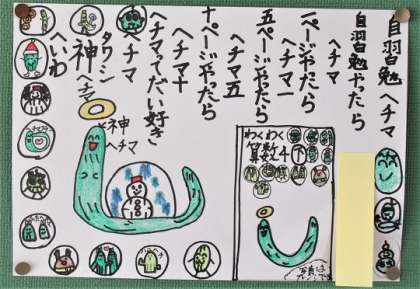 自習勉ヘチマ
自習勉やったら
ヘチマ
一ページやったら
ヘチマ一
五ページやったら
ヘチマ五
十ページやったら
ヘチマ十
ヘチマってだい好き
ヘチマ
タワシ
神ヘチマ
へいわ
神
ヘチマ
わくわく
算数4下